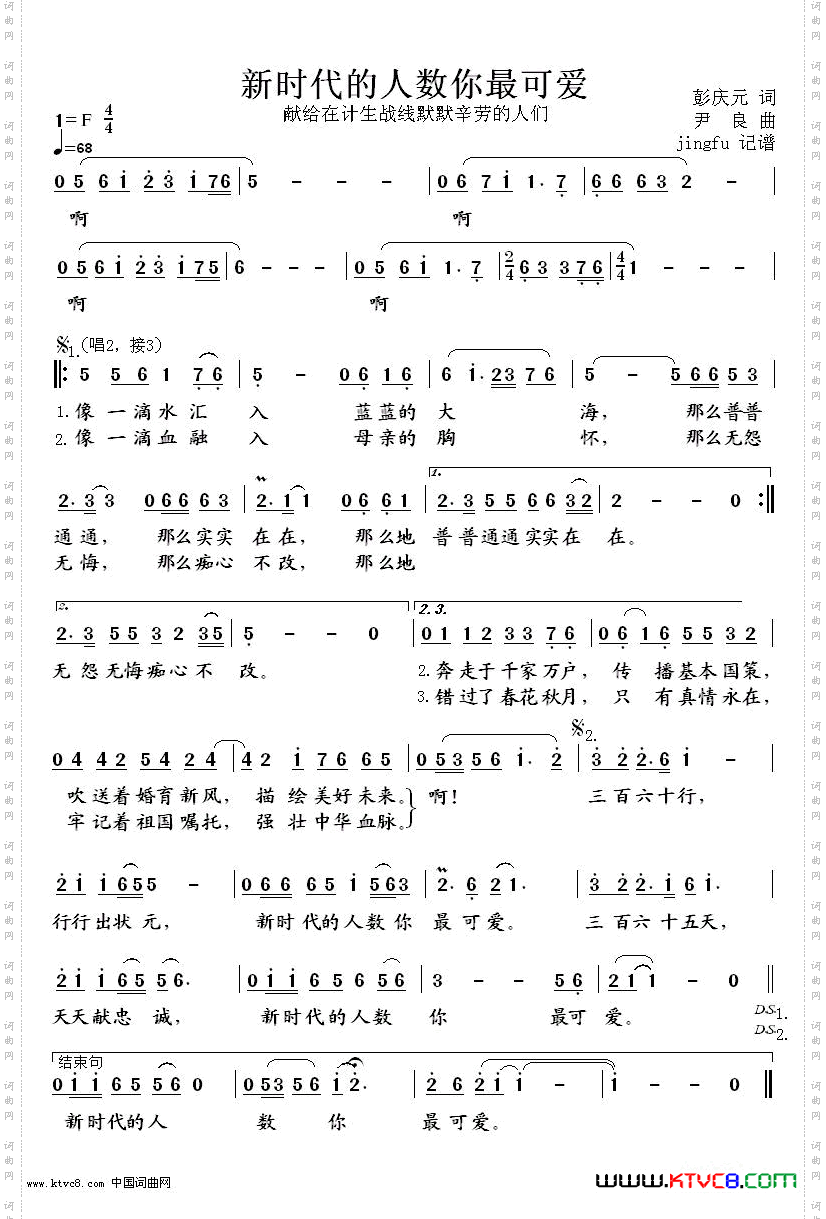 新时代的人数你最可爱
献给在计生战线默默辛劳的人们
彭庆元 词
尹 良 曲
jingfu 记谱
1=F 4/4
♩=68
0 5 6 i 2 3 i 7 6 | 5 - - - | 0 6 7 i 1· 7 | 6 6 6 3 2 - |
啊 啊
0 5 6 i 2 3 i 7 5 | 6 - - - | 0 5 6 i 1· 7 | 2/4 6 3 3 7 6 | 4/4 1 - - - |
啊 啊
𝄋1.(唱2，接3)
‖: 5 5 6 1 7 6 | 5 - 0 6 1 6 | 6 i· 2 3 7 6 | 5 - 5 6 6 5 3 |
1. 像 一 滴 水 汇 入 蓝蓝的 大 海， 那么普普
2. 像 一 滴 血 融 入 母亲的 胸 怀， 那么无怨
2· 3 3 0 6 6 6 3 | 2· 1 1 0 6 6 1 | 1. 2· 3 5 5 6 6 3 2 | 2 - - 0 :‖
通通， 那么实实 在在， 那么地 普普通通实实在 在。
无悔， 那么痴心 不改， 那么地
2. 2· 3 5 5 3 2 3 5 | 5 - - 0 | 2.3. 0 1 1 2 3 3 7 6 | 0 6 1 6 5 5 3 2 |
无怨无悔痴心不 改。 2. 奔走于千家万户， 传 播基本国策，
3. 错过了春花秋月， 只 有真情永在，
0 4 4 2 5 4 2 4 | 4 2 i 7 6 6 5 | 0 5 3 5 6 1· 2 | 𝄋2. 3 2 2· 6 i - |
吹送着婚育新风， 描 绘美好未来。 啊！ 三百六十行，
牢记着祖国嘱托， 强 壮中华血脉。
2 i i 6 5 5 - | 0 6 6 6 5 i 5 6 3 | 2· 6 2 1· | 3 2 2· i 6 i· |
行行出状 元， 新时代的人数你 最 可 爱。 三百六十五天，
2 i i 6 5 5 6· | 0 i 6 5 6 5 6 | 3 - - 5 6 | 2 1 1 - 0 ‖
天天献忠 诚， 新时代的人数 你 最可 爱。
D.S. 1.
D.S. 2.
结束句
0 i i 6 5 5 6 0 | 0 5 3 5 6 i 2· | 2 6 2 i i - | i - - 0 ‖
新时代的人 数 你 最可爱。
www.ktvc8.com 中国词曲网
www.KTVC8.COM
词曲网